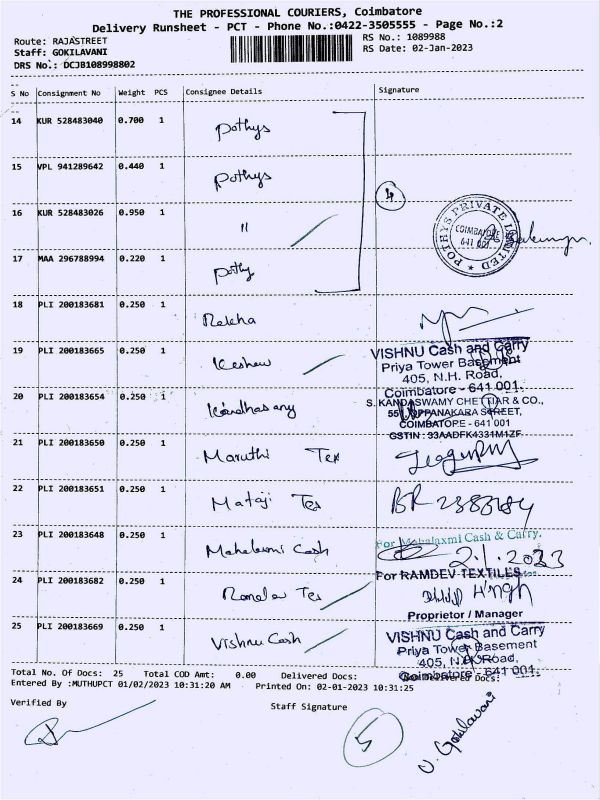 THE PROFESSIONAL COURIERS, Coimbatore
Delivery Runsheet - PCT - Phone No.:0422-3505555 - Page No.:2
Route: RAJASTREET
RS No.: 1089988
Staff: GOKILAVANI
RS Date: 02-Jan-2023
DRS No.: DCJB108998802
S No Consignment No Weight PCS Consignee Details Signature
14 KUR 528483040 0.700 1 Pothys
15 VPL 941289642 0.440 1 Pothys
4
16 KUR 528483026 0.950 1 "
POTHYS PRIVATE LIMITED
COIMBATORE
641 001
17 MAA 296788994 0.220 1 Pothy
18 PLI 200183681 0.250 1 Rekha
19 PLI 200183665 0.250 1 Keshav
VISHNU Cash and Carry
Priya Tower Basement
405, N.H. Road,
Coimbatore - 641 001.
20 PLI 200183654 0.250 1 Kandhasamy
S. KANDASWAMY CHETTIAR & CO.,
55 OPPANAKARA STREET,
COIMBATORE - 641 001
GSTIN : 33AADFK4331M1ZF
21 PLI 200183650 0.250 1 Maruthi Tex
22 PLI 200183651 0.250 1 Mataji Tex
23 PLI 200183648 0.250 1 Mahalaxmi Cash
For Mahalaxmi Cash & Carry.
2.1.2023
24 PLI 200183682 0.250 1 Ramdev Tex
For RAMDEV TEXTILES
Proprietor / Manager
25 PLI 200183669 0.250 1 Vishnu Cash
VISHNU Cash and Carry
Priya Tower Basement
405, N.H. Road,
Coimbatore - 641 001.
Total No. Of Docs: 25 Total COD Amt: 0.00 Delivered Docs: Delivered Docs:
Entered By :MUTHUPCT 01/02/2023 10:31:20 AM Printed On: 02-01-2023 10:31:25
Verified By
Staff Signature
5
V. Gokilavani